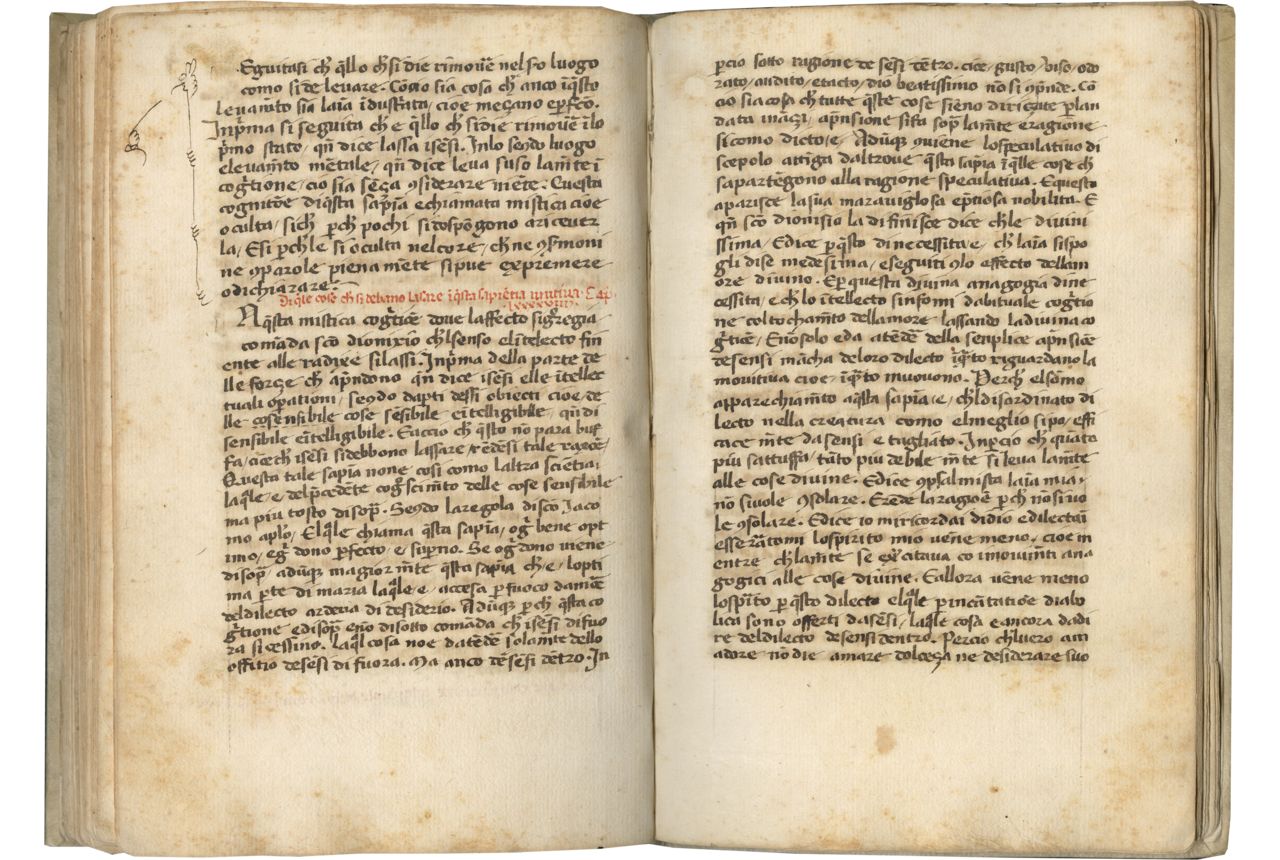 Eguitasi ch̄ q̄llo ch̄ si die rimoue᷑ nel so luogo
como si de leuare. Cōmo sia cosa ch̄ anco ī q̄sto
leuam̄to sia laīa īdustrata, cioe meçano ꝑfc̄o.
Inp̄ma si seguita che e q̄llo ch̄ si die rimoue᷑ ilo
p̄mo stato, qn̄ dice lassa isēsi. Inlo sc̄do luogo
eleuam̄to mētale, qn̄ dice leua suso lam̄te ī
cog᷑tione, cio sia sēça ꝯsiderare niēte. Questa
cognitōe diq̄sta sap̄ia echiamata mistica cioe
oculta, sich̄ ꝑch̄ pochi si dispōgono ariceuer
la, Esi ꝑch̄ le si oculta nelcore, ch̄ ne ꝯsmoni
ne ꝯparole pienamēte si puc exprēmere
odichiarare.
Di q̄le cose ch̄ si debano lasare ī q̄sta sapiētia unitiua. Cap.
A q̄sta mistica cog᷑tiōe doue laffecto sig᷑regia
comāda sc̄o dionixio ch̄ lsenso elītelecto fin
ente alle radixe si lassi. Inp̄ma della parte de
lle forze ch̄ ap̄ndono qn̄ dice isēsi elle ītellec
tuali opationi, sc̄do dapti dessi obiecti cioe de
lle cose sensibile cose sēsibile eītelligibile, qn̄ di
sensibile eītelligibile. Eaccio ch̄ q̄sto nō para buf
fa, cioe ch̄ isēsi sidebbono lassare, rēdesi tale
Questa tale sapīa none cosi como laltra sciētia,
laq̄le e delp̄cedēte cog᷑scim̄to delle cose sensibile
ma piu tosto disop̄. Sc̄do laregola disc̄o Jaco
mo aplō, Elq̄le chiama q̄sta sapīa, og᷑ bene opt
imo, eg᷑ dono ꝑfecto, e suꝑno. Se og᷑ dono uiene
disop̄, adūq̄ magiorm̄te q̄sta sapīa ch̄ e, lopti
ma ꝑte di maria laq̄le e, accesa ꝑ fuoco damōe
deldilecto ardeua di desiderio. Adūq̄ ꝑch̄ q̄sta co
g᷑tione edisop̄ eno disotto comāda ch̄ isēsi difuo
ra si cessino. Laq̄l cosa no e datēdē solam̄te dello
offitio desēsi di fuora. Ma anco dēsēsi dētro. In
ꝑcio sotto ragione de sēsi dētro. cioe, gusto, viso, odo
rato, audito, etacto, dio beatissimo nō si ꝯp̄nde. Cō
cio sia cosa ch̄ tutte q̄ste cose siēno diriçate ꝑ lan
data ināçi, ap̄nsione sifa sop̄ lam̄te eragione
sicomo dicto e, Adūq̄ ꝯuiene lospeculatiuo di
scepolo attiga daltroue q̄sta sapīa ī q̄lle cose ch̄
sapartēgono alla ragione speculatiua. Equesto
aparisce lasua marauiglosa eptiosa nobilita. E
qn̄ sc̄o dionisio la difinisce dice ch̄ le diuini
ssima, Edice ꝑ q̄sto dinecessita e, ch̄ laīa sispo
gli dise medesima, eseguiti ꝯlo effecto dellam
ore diuino. Eꝑ questa diuina anagogia dine
cessita, e ch̄ lo ītellecto sinfomi dabituale cog᷑tio
ne coltocham̄to dellamore lassando ladiuina co
g᷑tiōe, Enōsolo eda atēdē della senplice ap̄nsiōe
desensi mācha deloro dilecto īq̄to riguardano la
mouitiua cioe, īq̄to muouono. Perch̄ elsōmo
apparechiam̄to aq̄lla sapīa, e, ch̄l disordinato di
lecto nella creatura como elmeglio sipo, effi
cace m̄te dasensi e tagliato. Inꝑcio ch̄ quāto
piu sattuffa, tāto piu debile m̄te si leua lam̄te
alle cose diuine. Edice ꝯpsalmista laīa mia,
nō siuole ꝯsolare. Erēde laragiōe ꝑch̄ nō si uo
le ꝯsolare. Edice io miricordai didio edilectaī
esserātomi lospirito mio uene meno, cioe in
entre ch̄ lam̄te se exercitaua co imouim̄ti ana
gogici alle cose diuine. Eallora uēne meno
lospīto ꝑ q̄sto dilecto elq̄le ꝑ incātatiōe diabo
lica sono offerti dasēsi, laq̄le cosa eancora dadi
re deldilecto desensi dentro. Percio ch̄ luero am
adore nō die amare dolceça ne desiderare suo